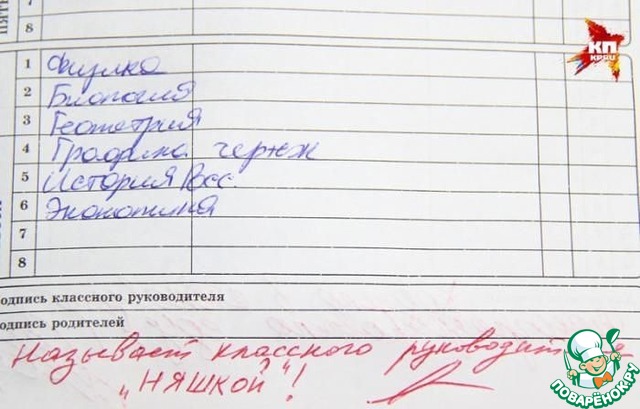 ПЯТН
7
8
КП
КРЫМ
1 Физика
2 Биология
3 Геометрия
4 Графика чертж
5 История Росс.
6 Экономика
7
8
одпись классного руководителя
одпись родителей
Называет классного руководителя
"НЯШКОЙ"!
ПОВАРЁНОК.РУ